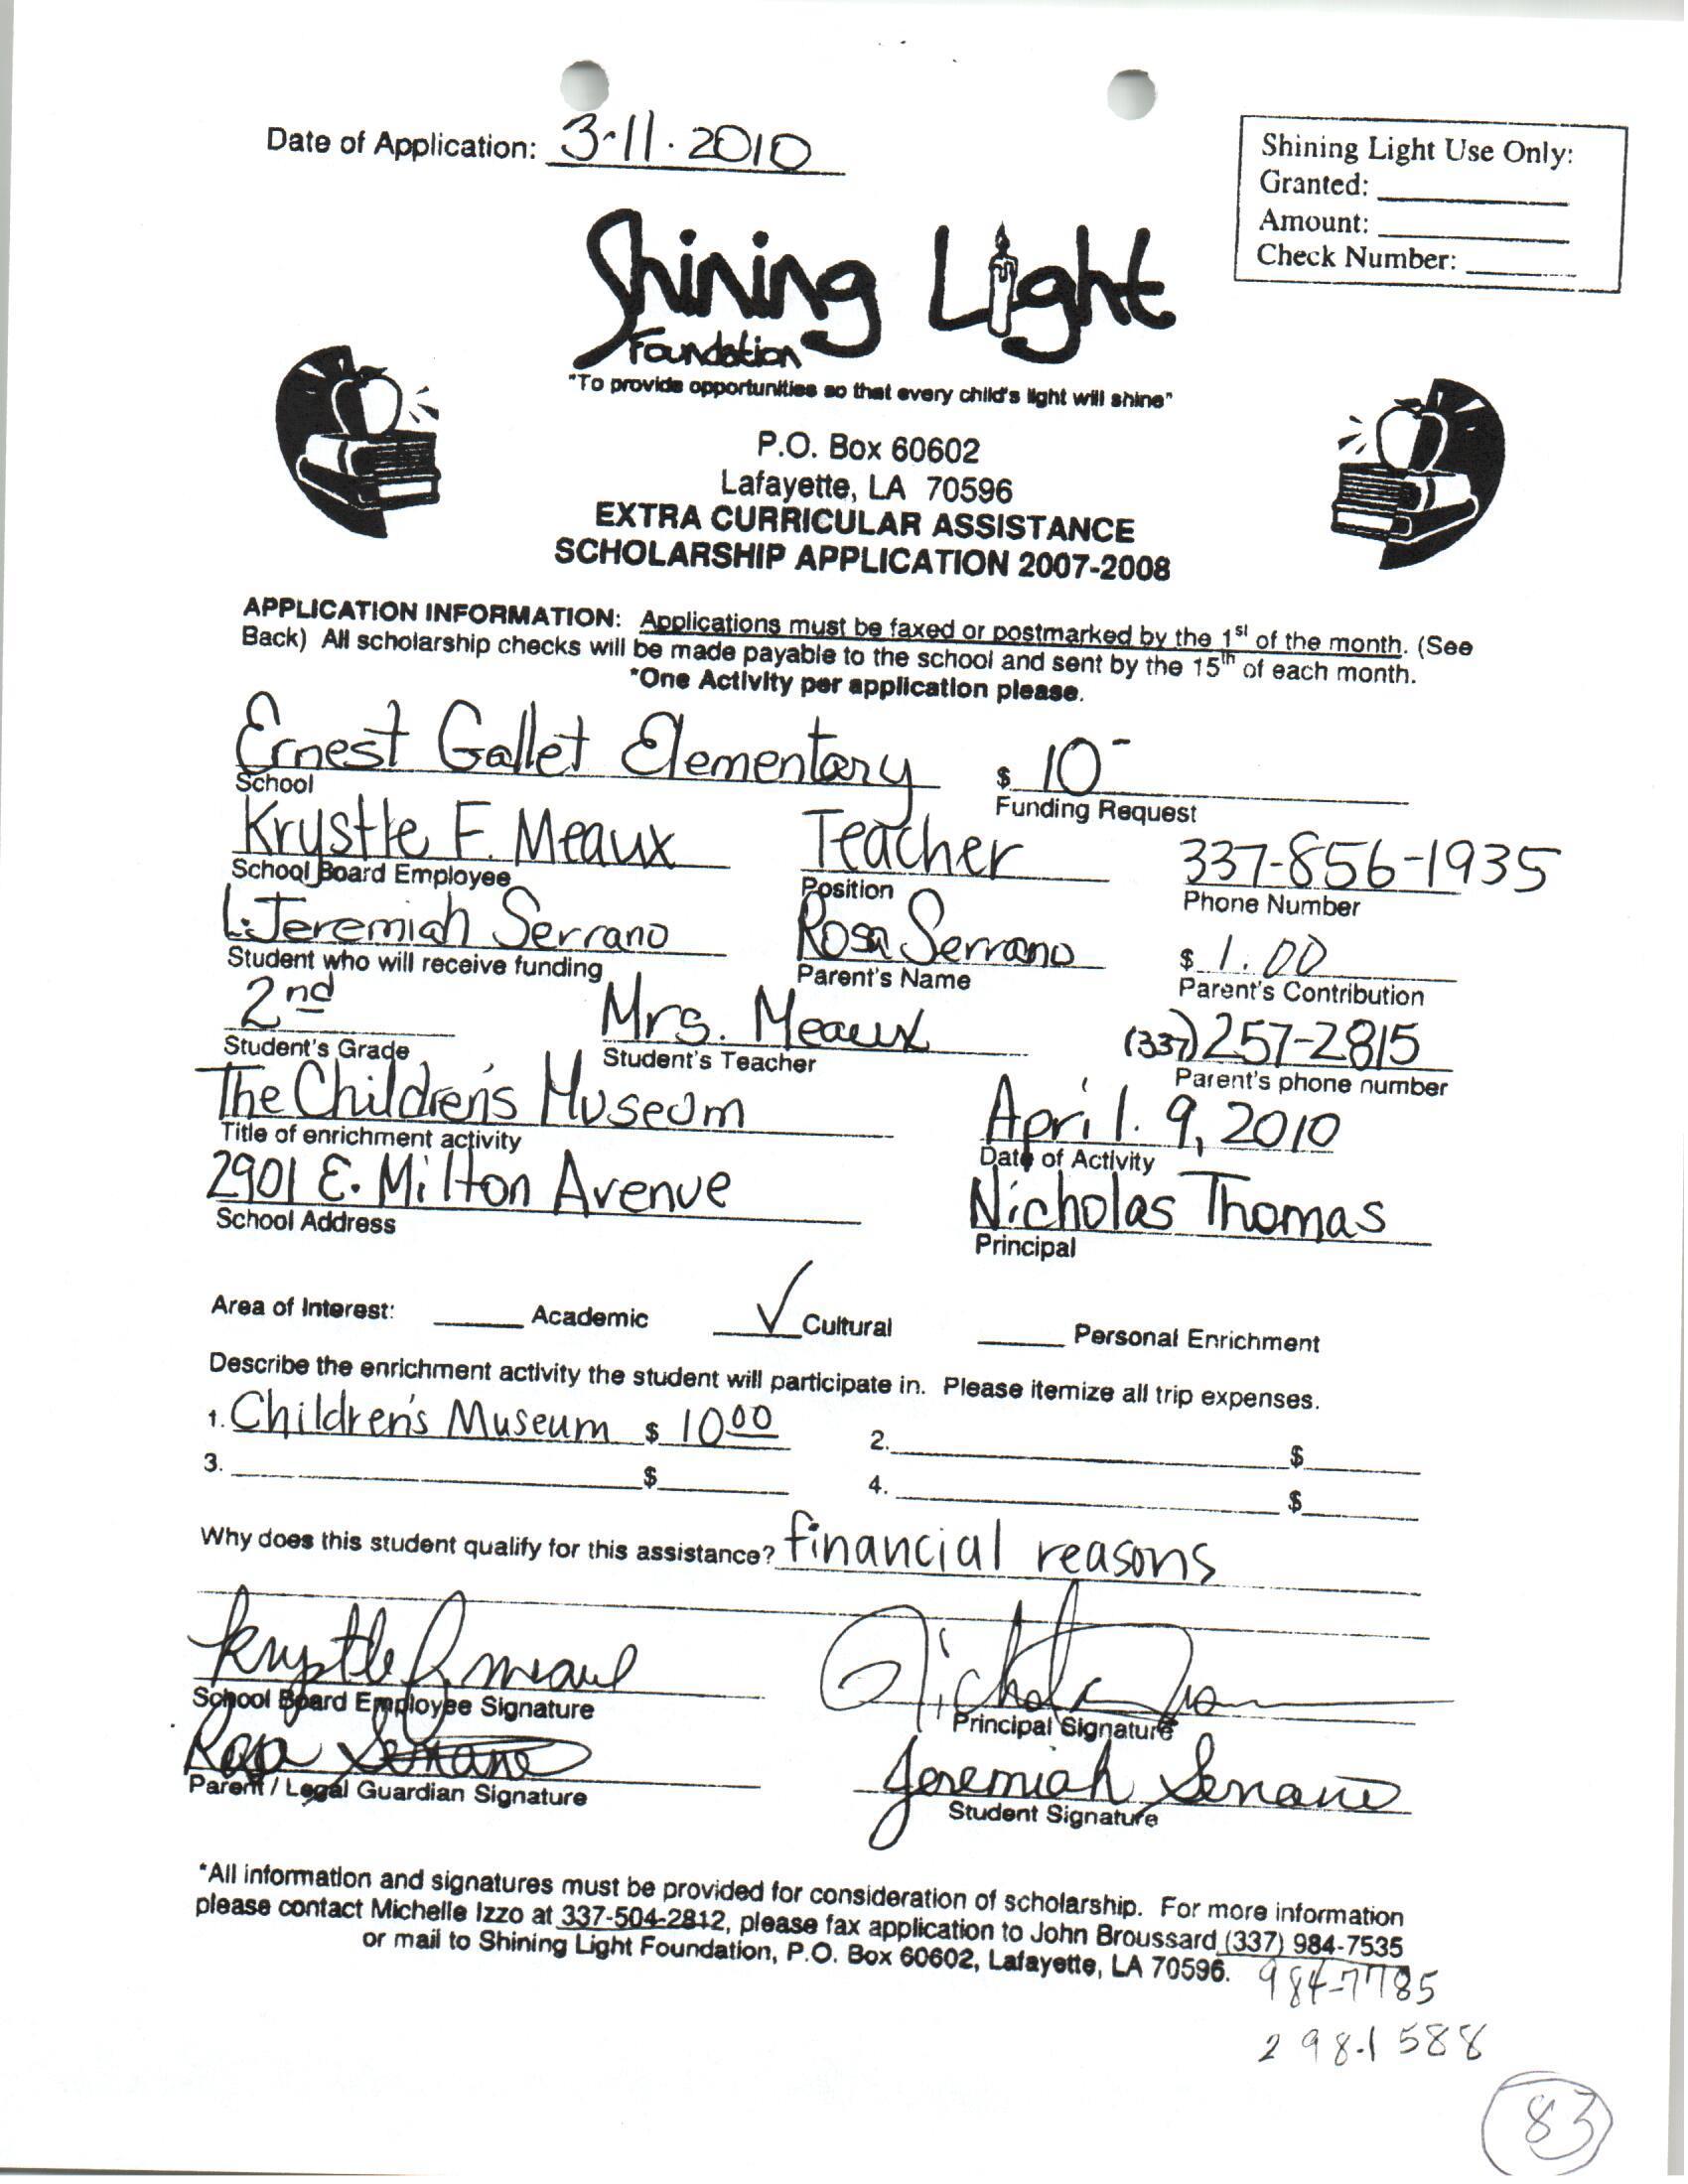 Date of Application: 3-11-2010
Shining Light Use Only:
Granted:
Amount:
Check Number:
Shining Light
Foundation
"To provide opportunities so that every child's light will shine"
P.O. Box 60602
Lafayette, LA 70596
EXTRA CURRICULAR ASSISTANCE
SCHOLARSHIP APPLICATION 2007-2008
APPLICATION INFORMATION: Applications must be faxed or postmarked by the 1st of the month. (See
Back) All scholarship checks will be made payable to the school and sent by the 15th of each month.
*One Activity per application please.
Ernest Gallet Elementary $ 10-
School Funding Request
Krystle F. Meaux Teacher 337-856-1935
School Board Employee Position Phone Number
L. Jeremiah Serrano Rosa Serrano $ 1.00
Student who will receive funding Parent's Name Parent's Contribution
2nd Mrs. Meaux (337) 257-2815
Student's Grade Student's Teacher Parent's phone number
The Children's Museum April. 9, 2010
Title of enrichment activity Date of Activity
2901 E. Milton Avenue Nicholas Thomas
School Address Principal
Area of Interest: Academic ✓ Cultural Personal Enrichment
Describe the enrichment activity the student will participate in. Please itemize all trip expenses.
1. Children's Museum $ 10 00 2. $
3. $ 4. $
Why does this student qualify for this assistance? financial reasons
Krystle F. Meaux Nicholas Thomas
School Board Employee Signature Principal Signature
Rosa Serrano Jeremiah Serrano
Parent / Legal Guardian Signature Student Signature
*All information and signatures must be provided for consideration of scholarship. For more information
please contact Michelle Izzo at 337-504-2812, please fax application to John Broussard (337) 984-7535
or mail to Shining Light Foundation, P.O. Box 60602, Lafayette, LA 70596.
984-7785
298-1588
83